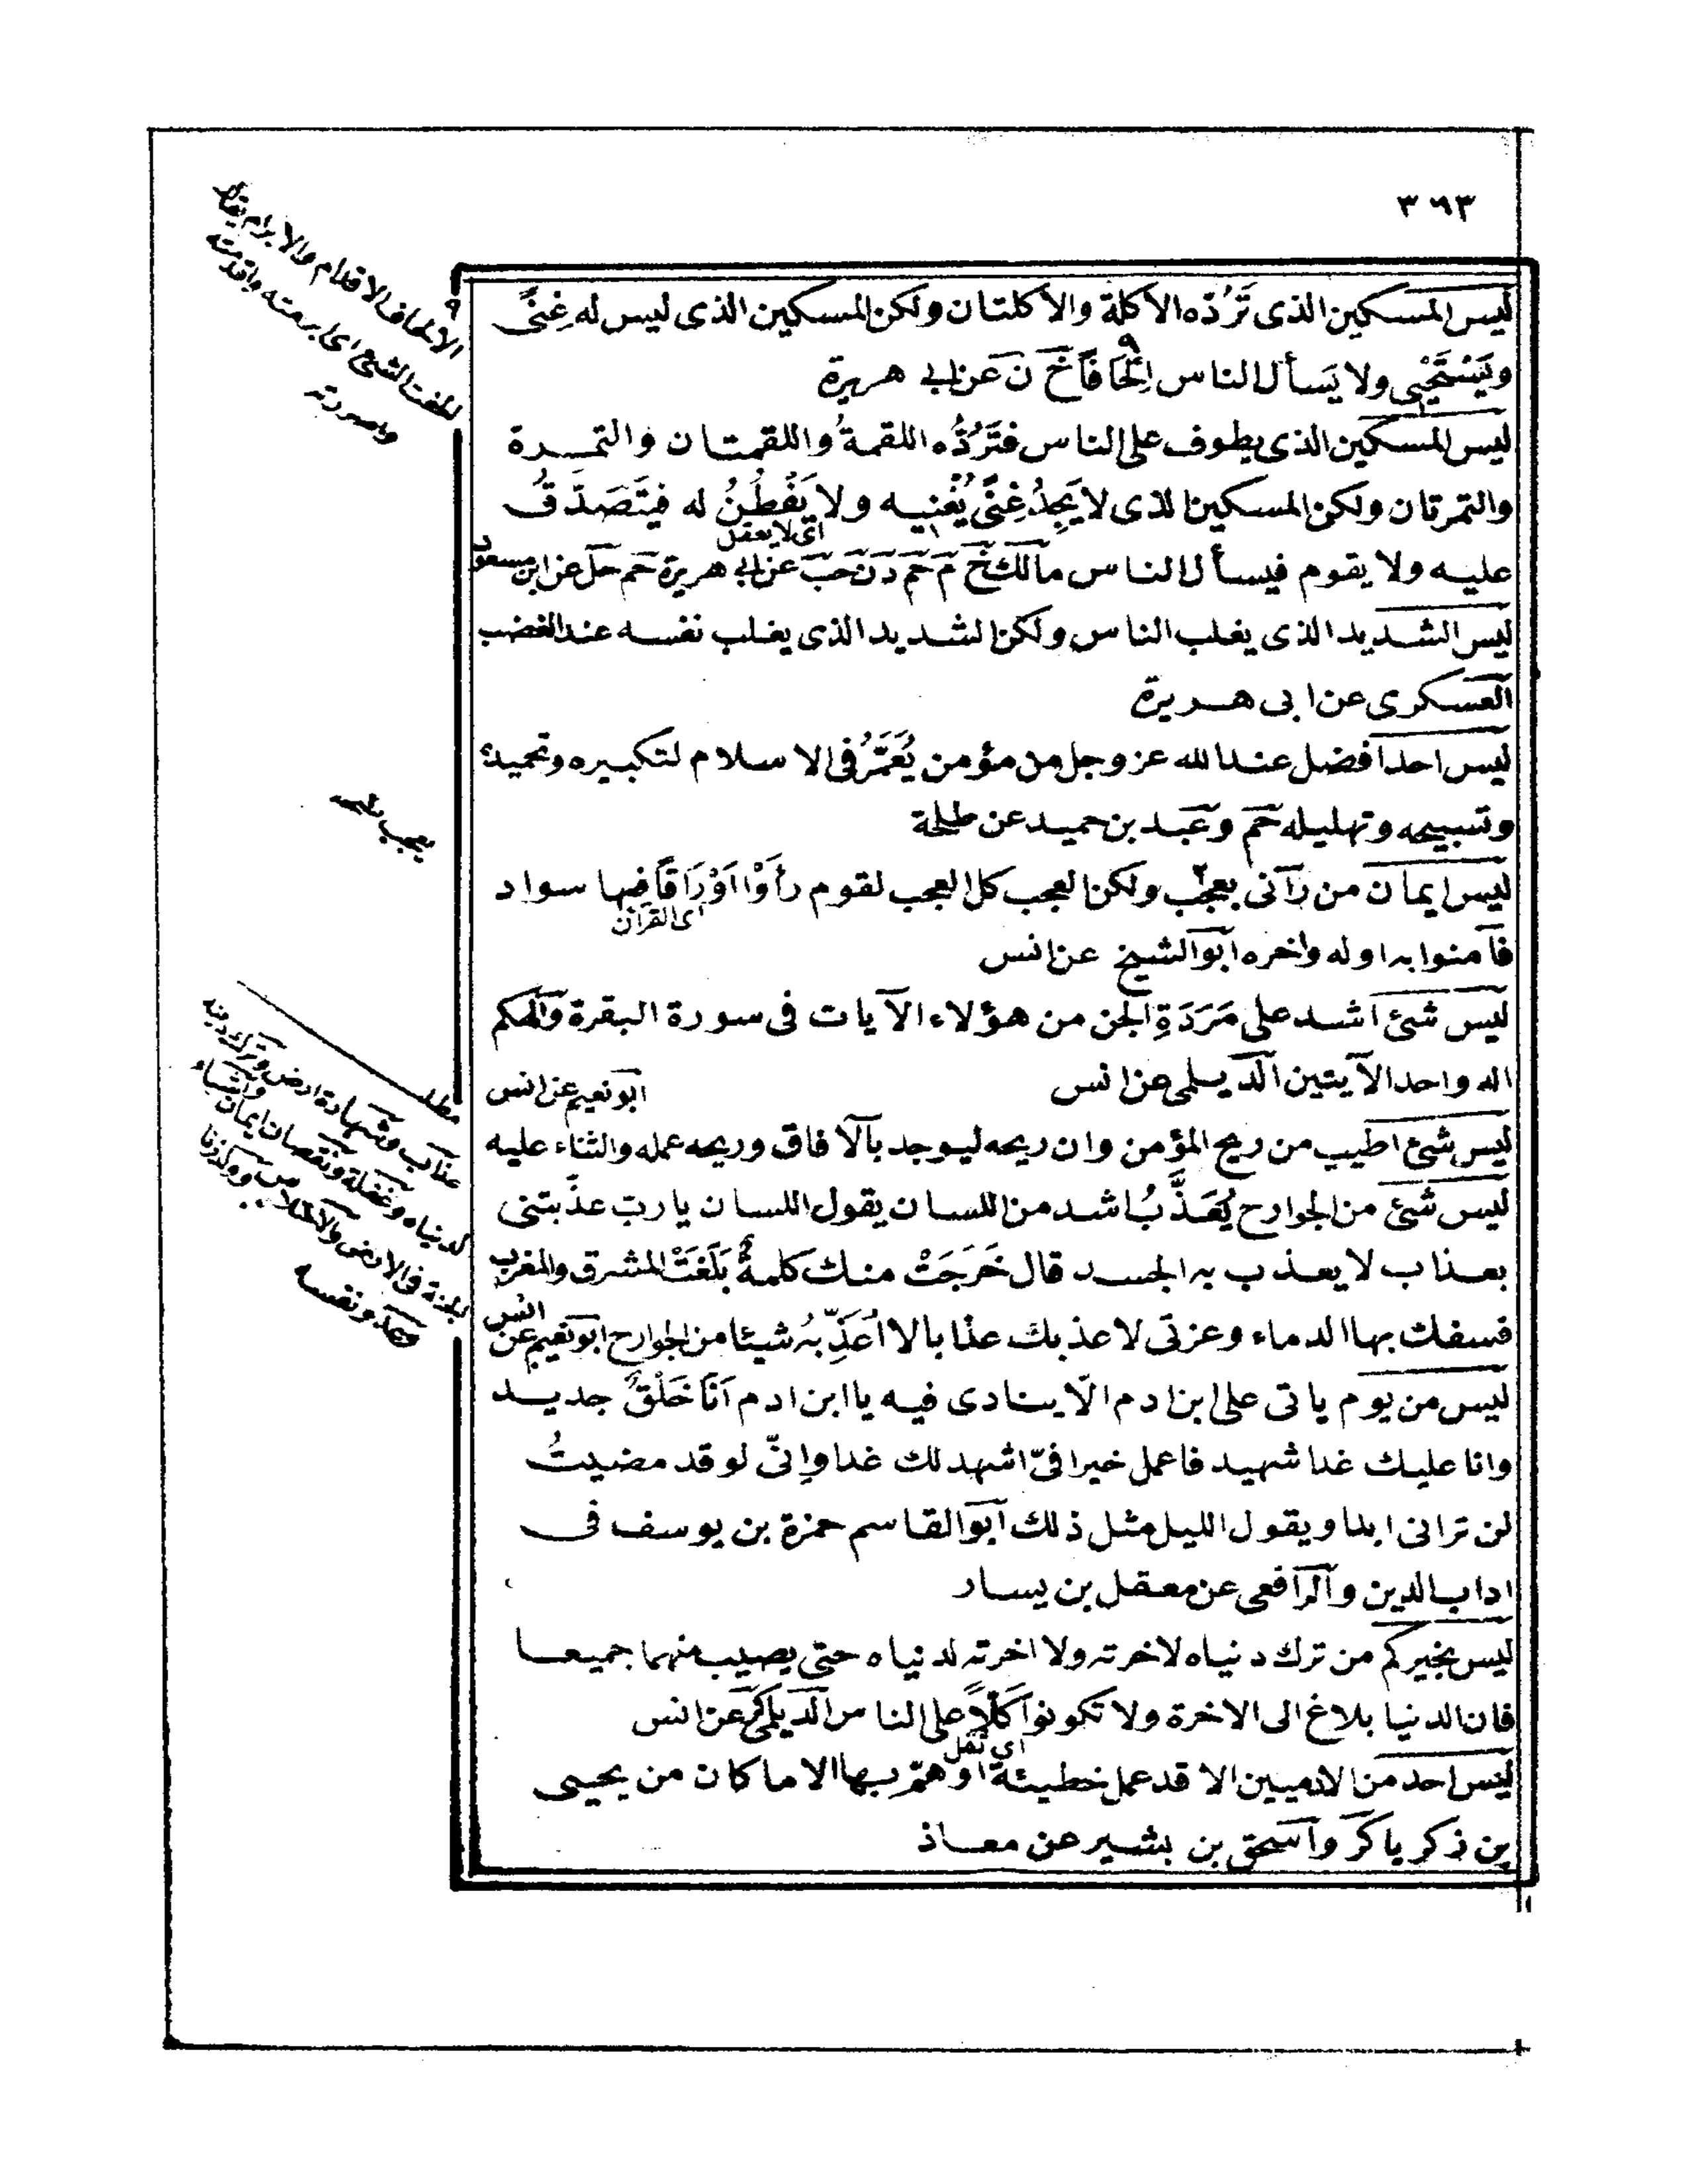 ٣٦٣
ليس المسكين الذى تَرُدّه الأكلة والأكلتان ولكن المسكين الذى ليس له غِنًى
ويَسْتَحْيِى ولا يَسأل الناس اِلْحَافًا خ ن عن ابى هريرة
ليس المسكين الذى يطوف على الناس فتَرُدُّه اللقمةُ واللقمتان والتمرة
والتمرتان ولكن المسكين الذى لا يَجِدُ غِنًى يُغْنِيه ولا يَفْطُنُ له فيتَصَدَّقُ
اى لا يعقل
عليه ولا يقوم فيسأل الناس مالك خ م حم د ن حب عن ابى هريرة حم حل عن ابن مسعود
ليس الشديد الذى يغلب الناس ولكن الشديد الذى يغلب نفسه عند الغضب
العسكرى عن ابى هريرة
ليس احد افضل عند الله عز وجل من مؤمن يُعَمَّرُ فى الاسلام لتكبيره وتحميده
وتسبيحه وتهليله حم وعبد بن حميد عن طلحة
ليس ايمان من رآنى بعجب ولكن العجب كل العجب لقوم رأوْا اوْرَاقًا فيها سواد
اى القرآن
فآمنوا به اوله واخره ابو الشيخ عن انس
ليس شئ اشد على مَرَدَةِ الجن من هؤلاء الآيات فى سورة البقرة والهكم
اله واحد الآيتين الديلمى عن انس
ابو نعيم عن انس
ليس شئ اطيب من ريح المؤمن وان ريحه ليوجد بالآفاق وريحه عمله والثناء عليه
ليس شئ من الجوارح يُعَذَّبُ اشد من اللسان يقول اللسان يا ربّ عذّبتنى
بعذاب لا يعذب به الجسد قال خَرَجَتْ منك كلمةٌ بَلَغَتْ المشرق والمغرب
فسفك بها الدماء وعزتى لاعذبك عذابا لا اُعَذِّبُهُ شيئا من الجوارح ابو نعيم عن انس
ليس من يوم ياتى على ابن ادم الّا ينادى فيه يا ابن ادم اَنَا خَلْقٌ جديد
وانا عليك غدا شهيد فاعمل خيرا فىّ اشهد لك غدا وإنىّ لو قد مضيتُ
لن ترانى ابدا ويقول الليل مثل ذلك ابو القاسم حمزة بن يوسف فى
اداب الدين والرافعى عن معقل بن يسار
ليس بخيركم من ترك دنياه لاخرته ولا اخرته لدنياه حتى يصيب منهما جميعا
فان الدنيا بلاغ الى الاخرة ولا تكونوا كَلًّا على الناس الديلمى كر عن انس
اى ثقل
ليس احد من الادميين الا قد عمل خطيئة او همّ بها الا ما كان من يحيى
بن ذكريا كر واسحق بن بشير عن معاذ
٩
الالحاف الاقدام والابرام يقال
الحفت الشئ اى ابرمته واقدمته
مطلب
عذاب وشهادة ارض وترك دينه